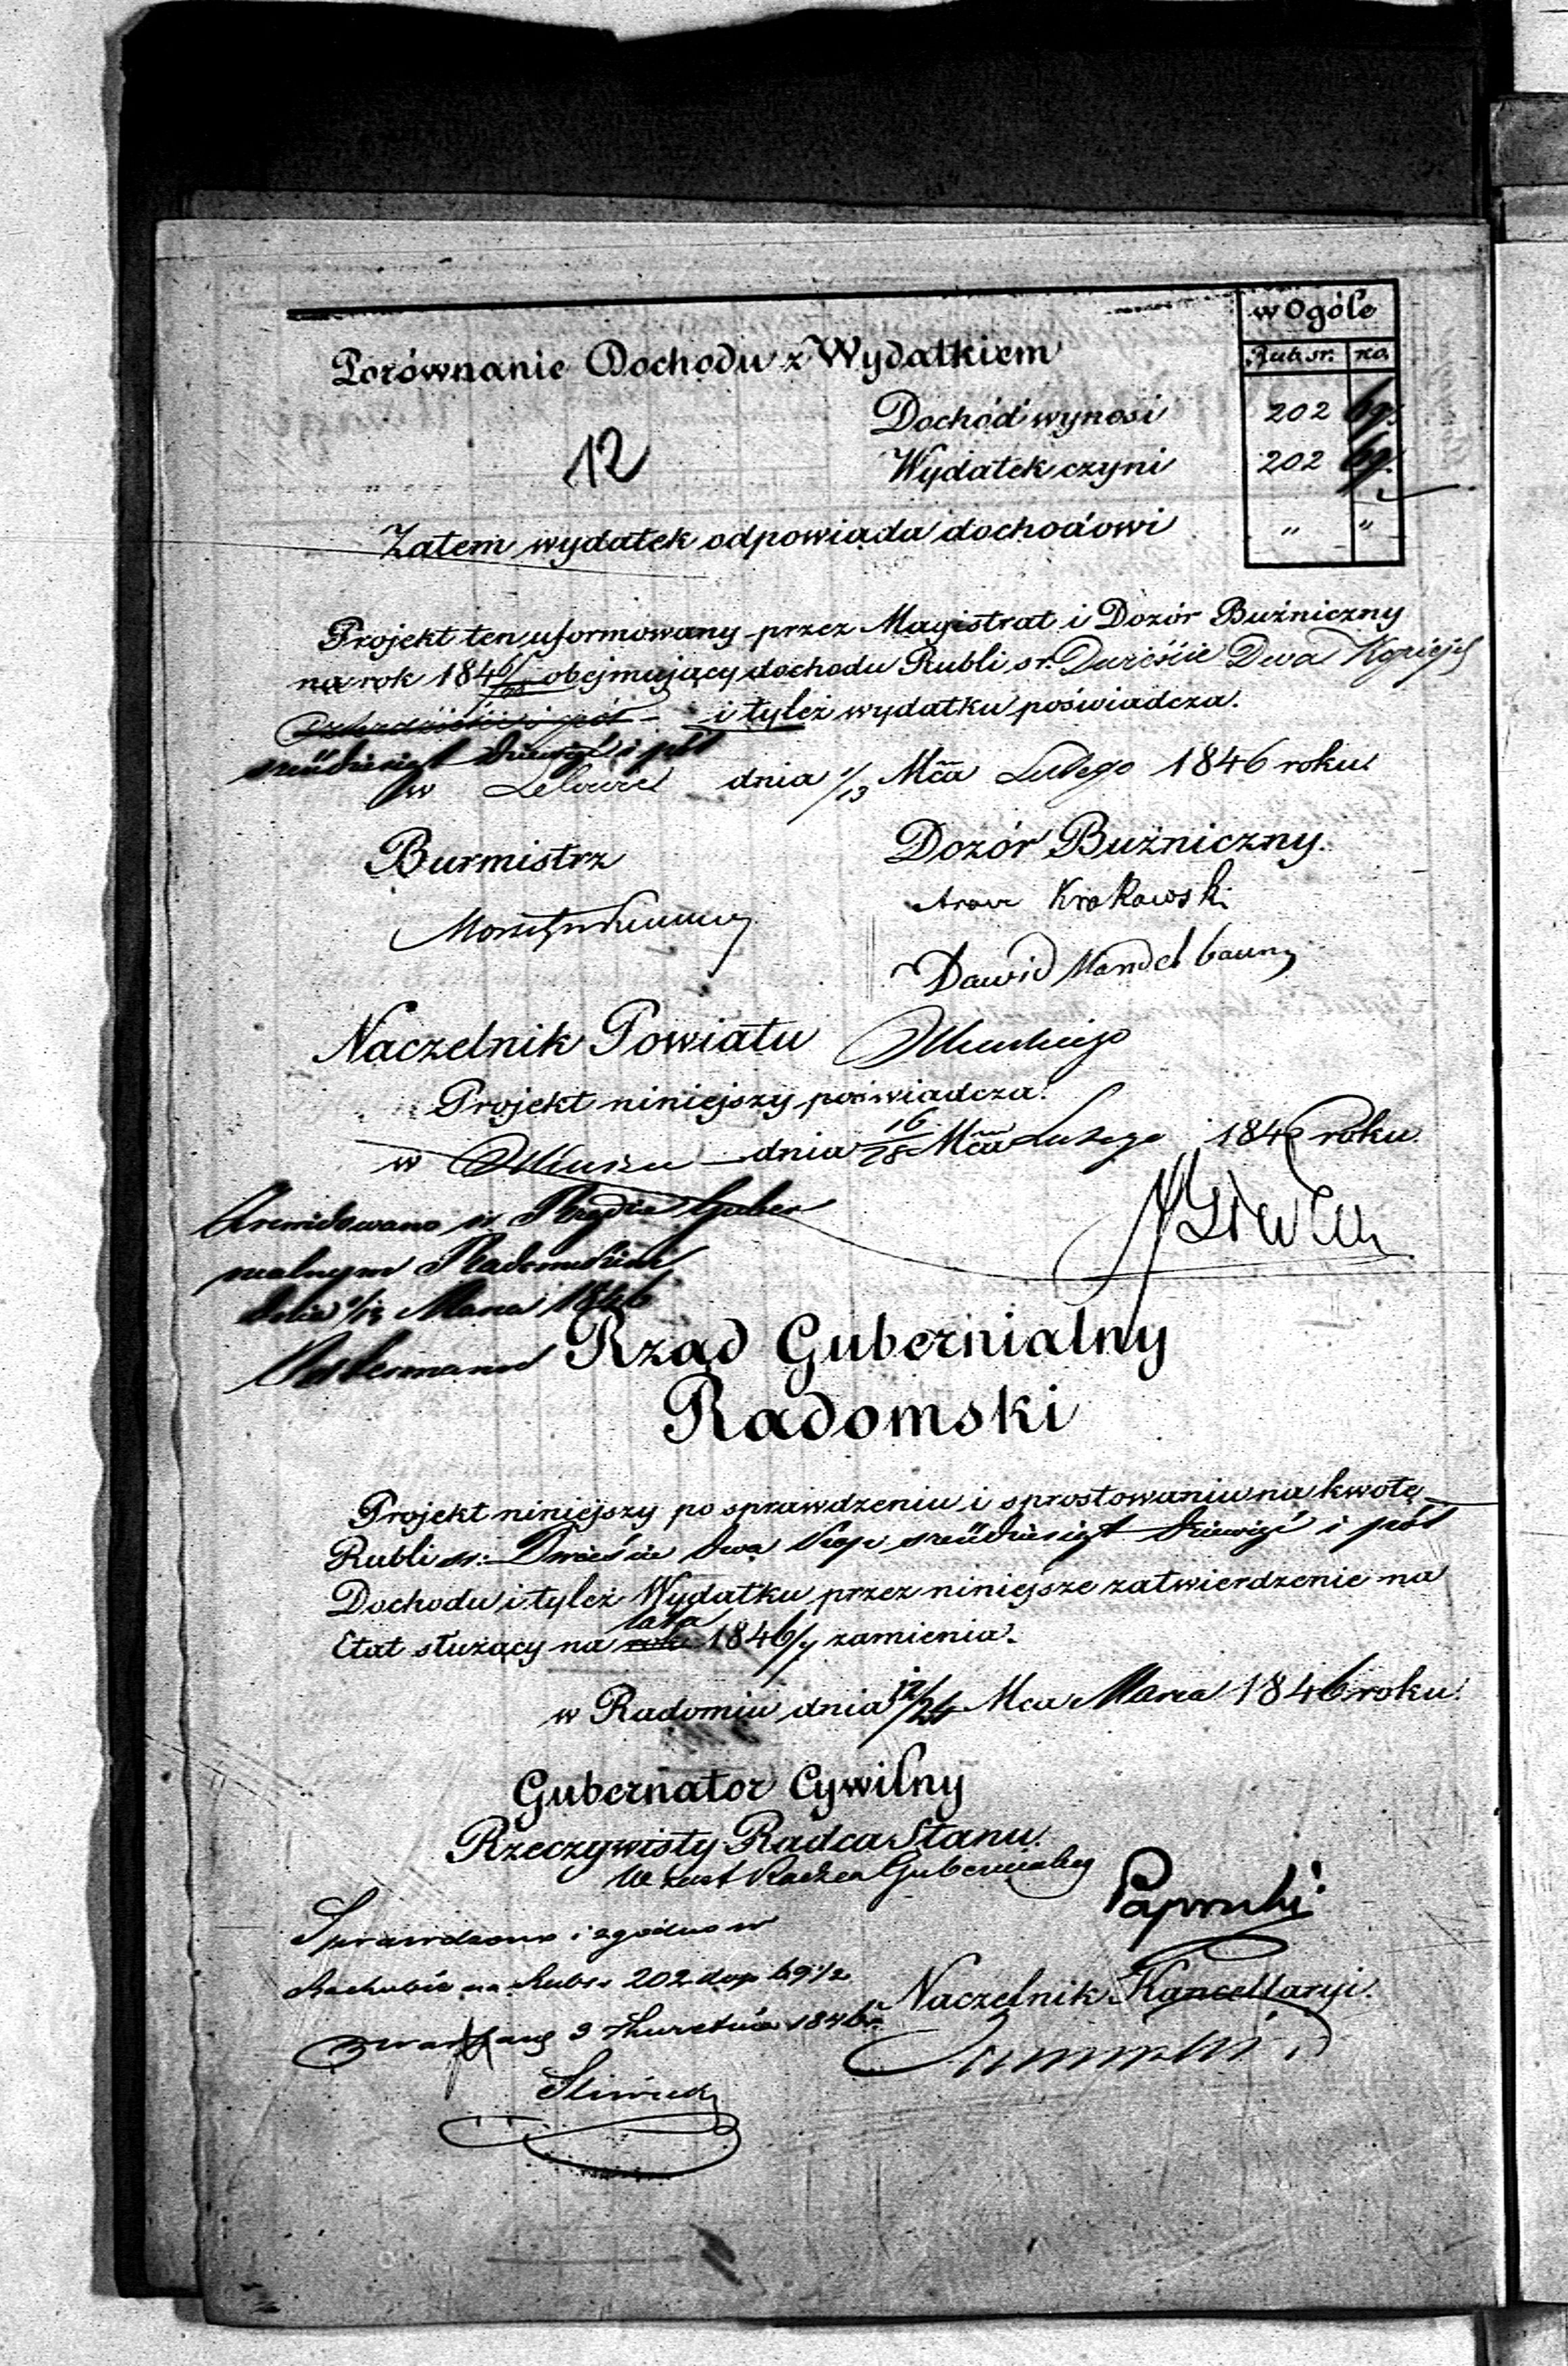 w Ogóle
Rub. sr. ko.
Porównanie Dochodu z Wydatkiem
Dochód wynosi 202 69½
12
Wydatek czyni 202 69½
Zatem wydatek odpowiada dochodowi „ „
Projekt ten uformowany przez Magistrat i Dozór Buźniczny
na rok 1846/ obejmujący dochodu Rubli sr. Dwieście Dwa Kopiejek
i pół — i tyleż wydatku poświadcza.
sześćdziesiąt dziewięć i pół
w Lelowie dnia 1/13 Mca Lutego 1846 roku.
Burmistrz Dozór Buźniczny.
Aron Krakowski
Dawid Mandelbaum
Naczelnik Powiatu Olkuskiego
Projekt niniejszy poświadcza.
w Olkuszu dnia 16/28 Mca Lutego 1846 roku.
Zrewidowano w Rządzie Guber
nialnym Radomskim
dnia Marca 1846
Rząd Gubernialny
Radomski
Projekt niniejszy po sprawdzeniu i sprostowaniu na kwotę
Rubli sr: Dwieście dwa Kop. sześćdziesiąt dziewięć i pół
Dochodu i tyleż Wydatku przez niniejsze zatwierdzenie na
lata
Etat służący na roku 1846/ zamienia.
w Radomiu dnia 12/24 Mca Marca 1846 roku.
Gubernator Cywilny
Rzeczywisty Radca Stanu.
W zast Radca Gubernialny
Paprocki
Sprawdzono i zgodno w
Rachubie na Rubsr 202 kop 69½
Naczelnik Kancellaryi.
3 Kwietnia 1846 r.
Śliwicki